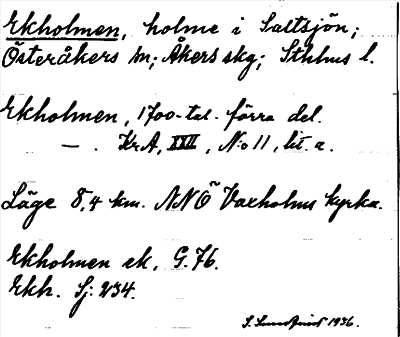 Ekholmen, holme i Saltsjön;
Österåkers sn; Åkers skg; Sthlms l.
Ekholmen, 1700-tal. förra del.
— . Kr.A, XXII, N:o 11, lit. a.
Läge 8,4 km. NNÖ Vaxholms kyrka.
Ekholmen ek. G.76.
Ekh. Sj. 234.
1936.